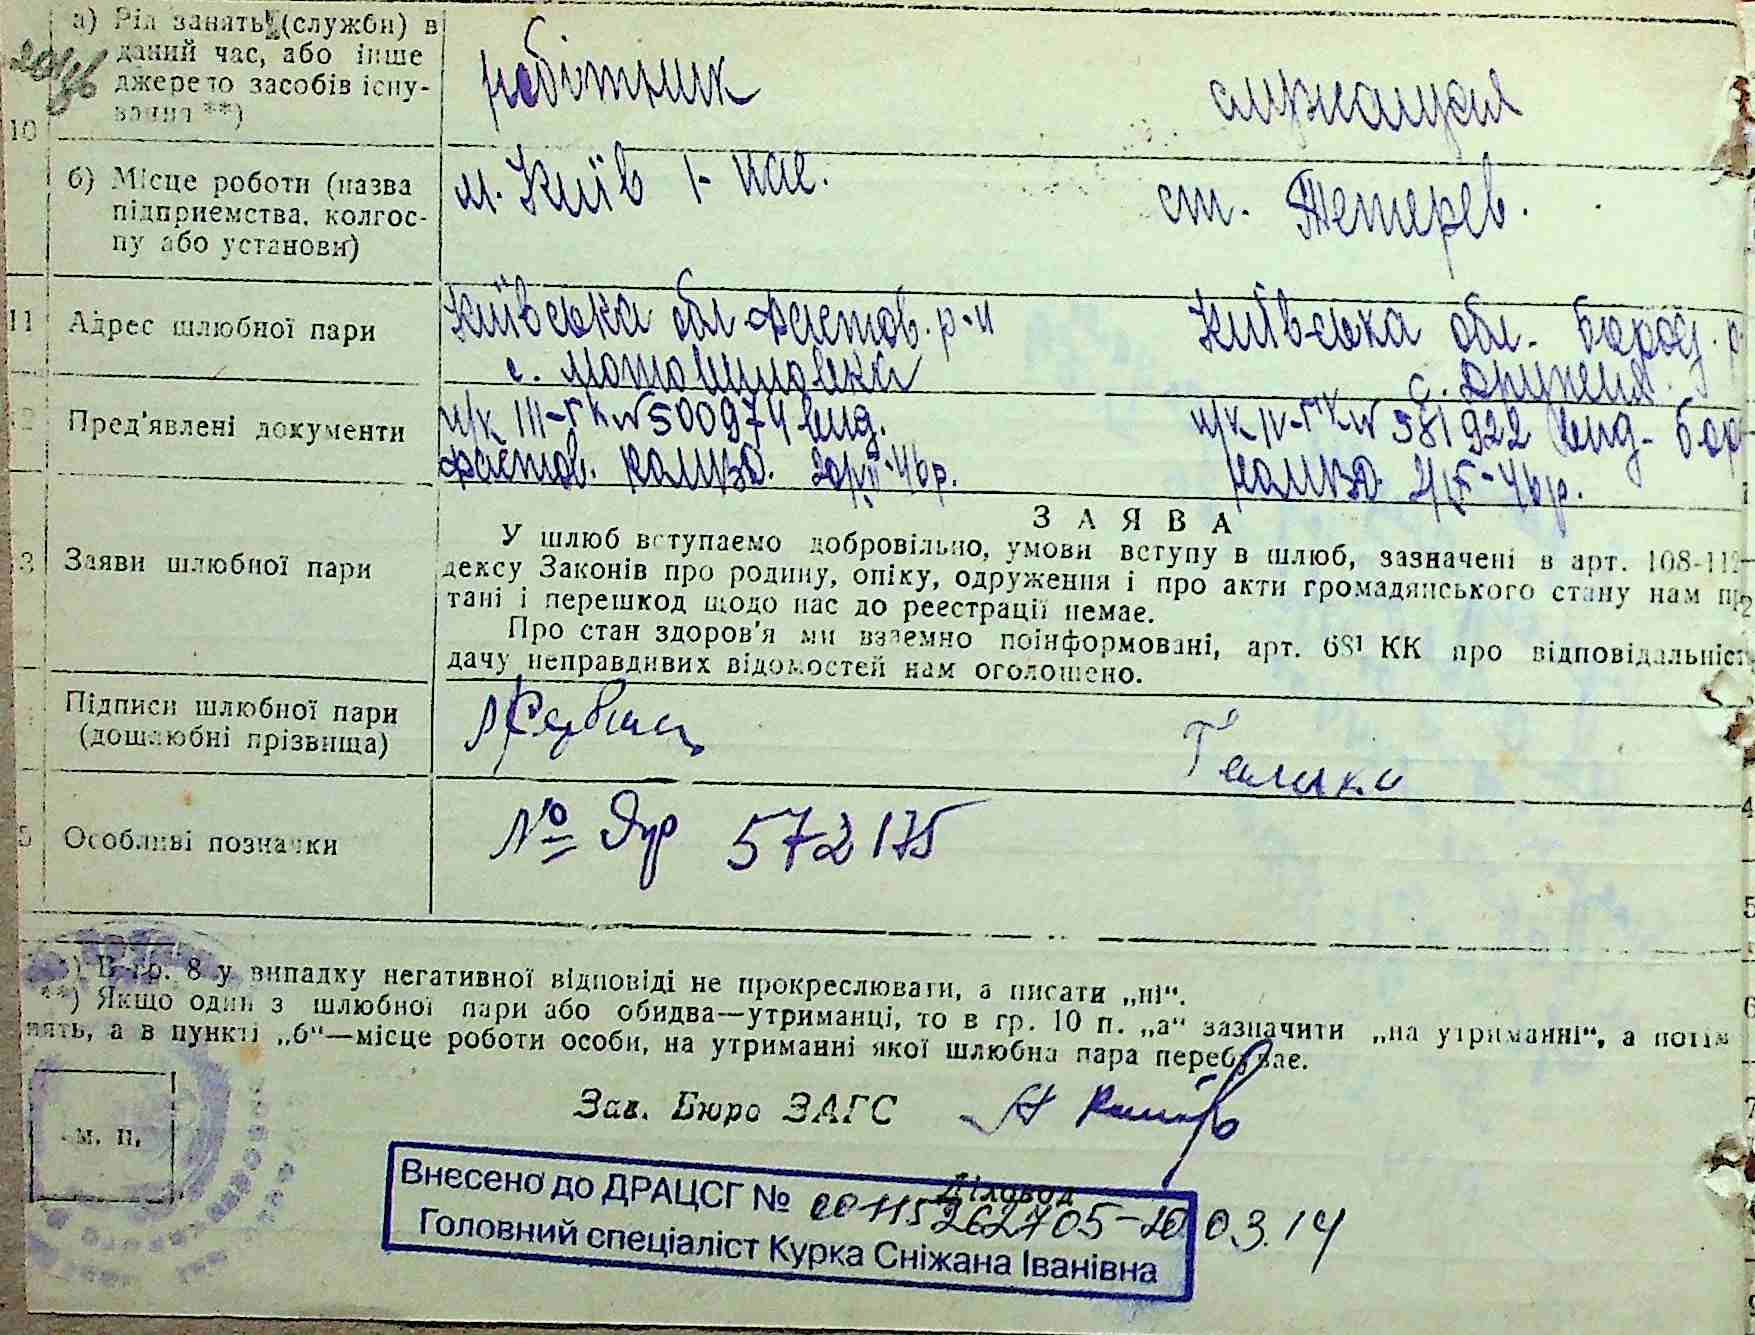 а) Рід занять (служби) в
даний час, або інше
джерело засобів існу-
вання **)
робітник
службовця
10
б) Місце роботи (назва
підприємства, колгос-
пу або установи)
м. Київ 1-
ст. Тетерев.
11 Адрес шлюбної пари
Київська обл. Фастов. р-н
с. Мотовиловка
Київська обл. Бород. р
с. Дружня
Пред'явлені документи
п/к III-ГК № 500974 вид.
Фастов. 46р.
п/к IV-ГК № 581922 вид. Бор
46р.
З А Я В А
3 Заяви шлюбної пари
У шлюб вступаємо добровільно, умови вступу в шлюб, зазначені в арт. 108-112
дексу Законів про родину, опіку, одруження і про акти громадянського стану нам
тані і перешкод щодо нас до реєстрації немає.
Про стан здоров'я ми взаємно поінформовані, арт. 68¹ КК про відповідальніст
дачу неправдивих відомостей нам оголошено.
Підписи шлюбної пари
(дошлюбні прізвища)
5 Особливі позначки
№ 572175
*) В гр. 8 у випадку негативної відповіді не прокреслювати, а писати „ні“.
**) Якщо один з шлюбної пари або обидва—утриманці, то в гр. 10 п. „а“ зазначити „на утриманні“, а потім
нять, а в пункті „б“—місце роботи особи, на утриманні якої шлюбна пара перебуває.
м. п.
Зав. Бюро ЗАГС
Діловод
Внесено до ДРАЦСГ № 00115262705-20.03.14
Головний спеціаліст Курка Сніжана Іванівна